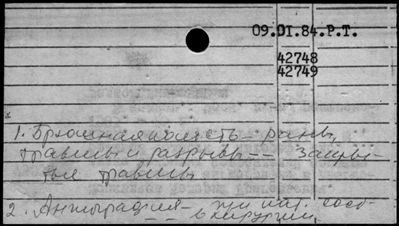 09.01.84.Р.Т.
42748
42749
1. Брюшная полость - раны,
травмы и разрывы -- Закры-
тые травмы
2. Ангиография - при пат. сост.
-- в хирургии